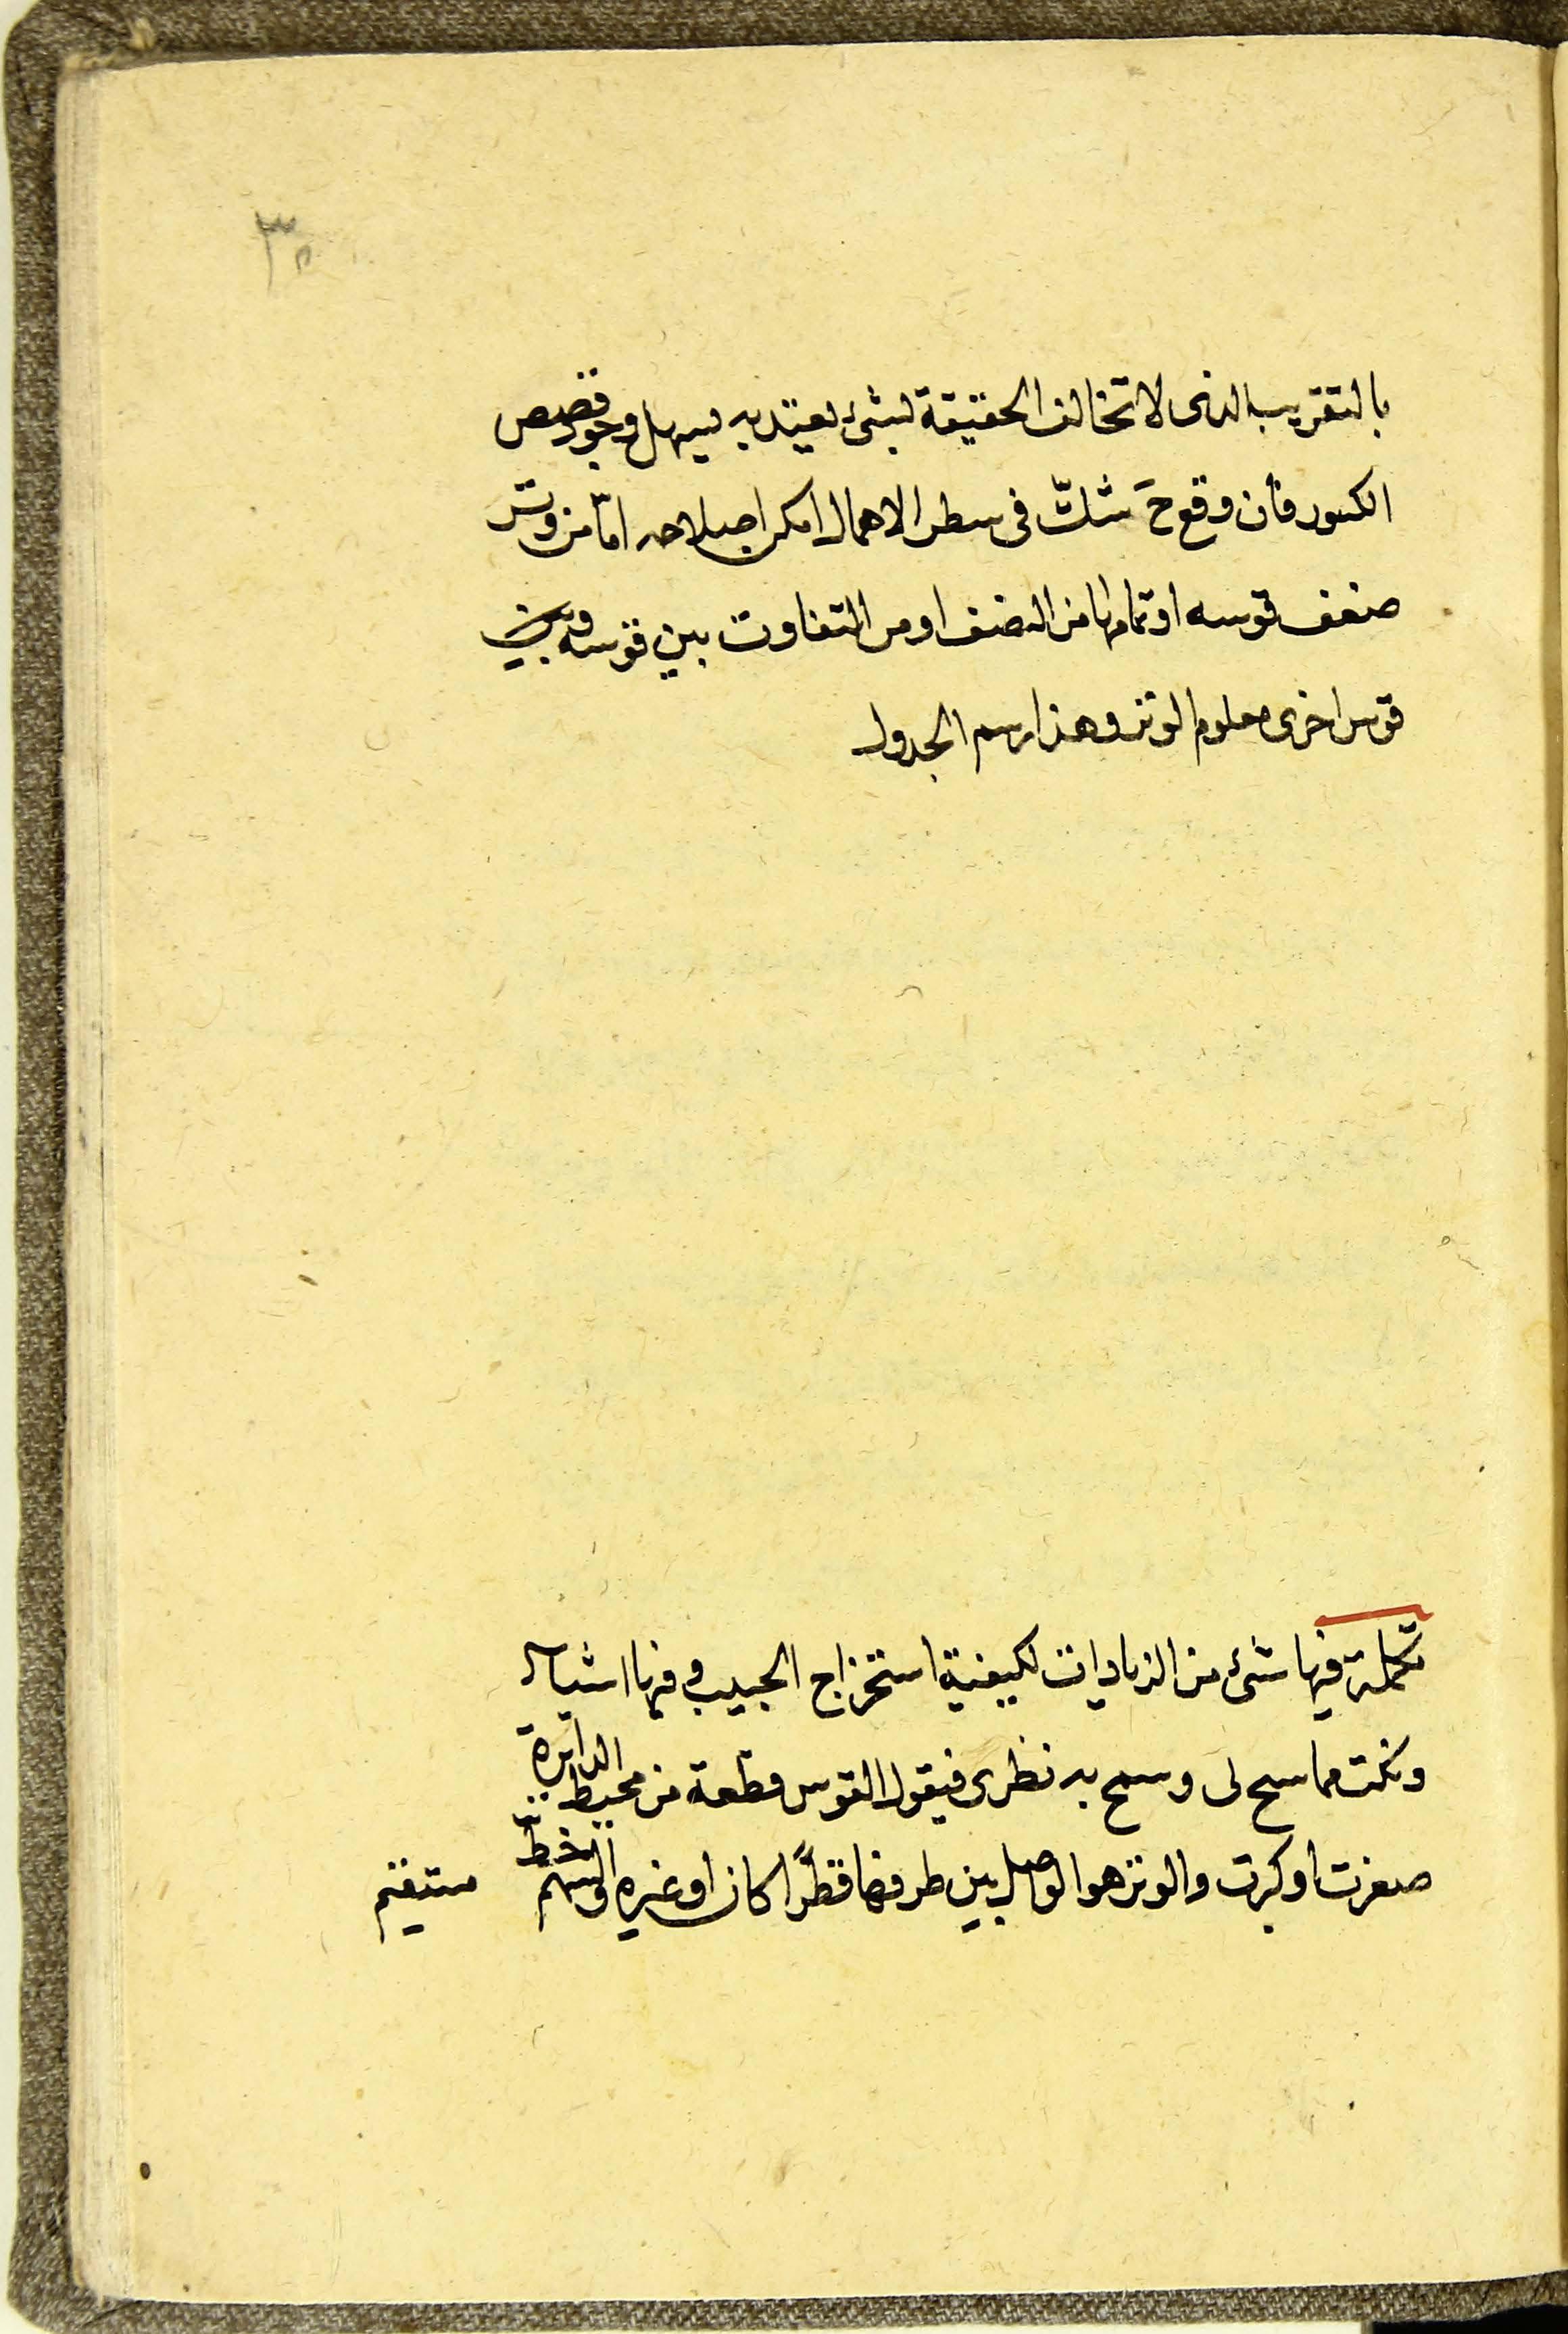 ٣٥
بالتقريب الذى لا تخالف الحقيقة لبشئ يعتد به ليسهل وجود قصص
الكسور فان وقع ح شكّ فى سطر الاهمال امكن اصلاحه امّا من وتر
ضعف قوسه او تمامها من النصف او من التفاوت بين قوسه وبين
قوس اخرى معلوم الوتر وهذا رسم الجدول
تكملة فيها شئ من الزيادات لكيفية استخراج الجيب وفيها اشياء
ونكت مما سح لى وسمح به نظرى فيقول القوس قطعة من محيط الدائرة
صغرت او كبرت والوتر هو الواصل بين طرفها قطرًا كان او غيره والسهم الخطّ
مستقيم